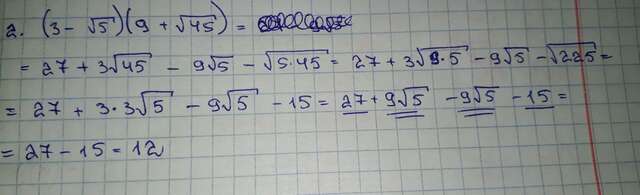 2. (3 - √5)(9 + √45) =
= 27 + 3√45 - 9√5 - √5·45 = 27 + 3√9·5 - 9√5 - √225 =
= 27 + 3·3√5 - 9√5 - 15 = 27 + 9√5 - 9√5 - 15 =
= 27 - 15 = 12